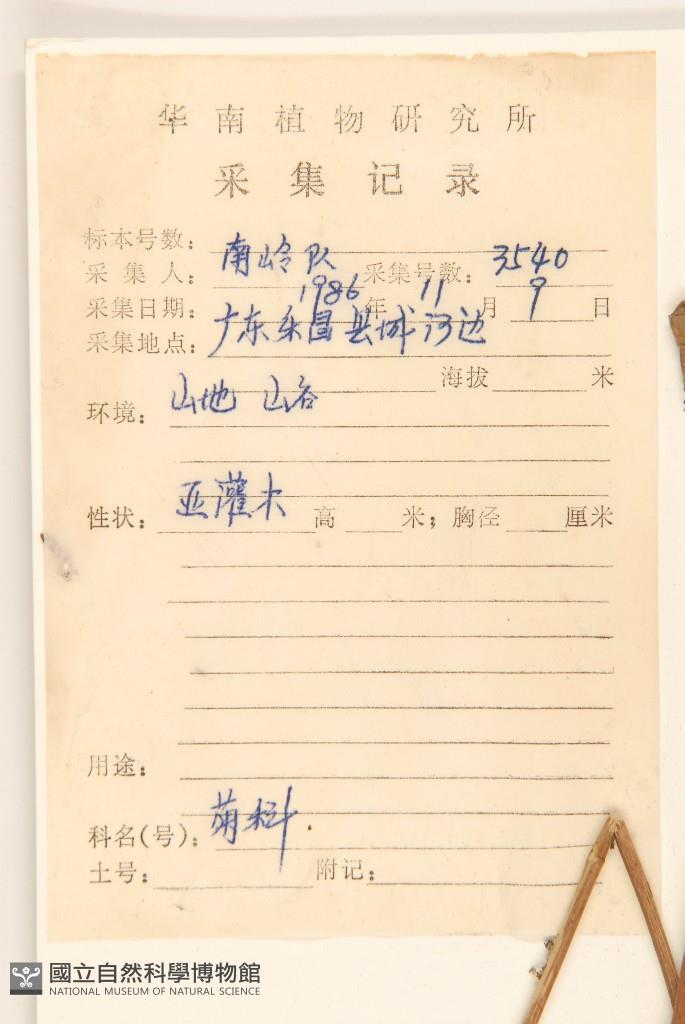 华南植物研究所
采集记录
标本号数：
采集人：南岭队 采集号数：3540
采集日期：1986年11月9日
采集地点：广东乐昌县城河边
海拔 米
环境：山地 山谷
性状：亚灌木 高 米；胸径 厘米
用途：
科名(号)：菊科.
土号： 附记：
國立自然科學博物館
NATIONAL MUSEUM OF NATURAL SCIENCE